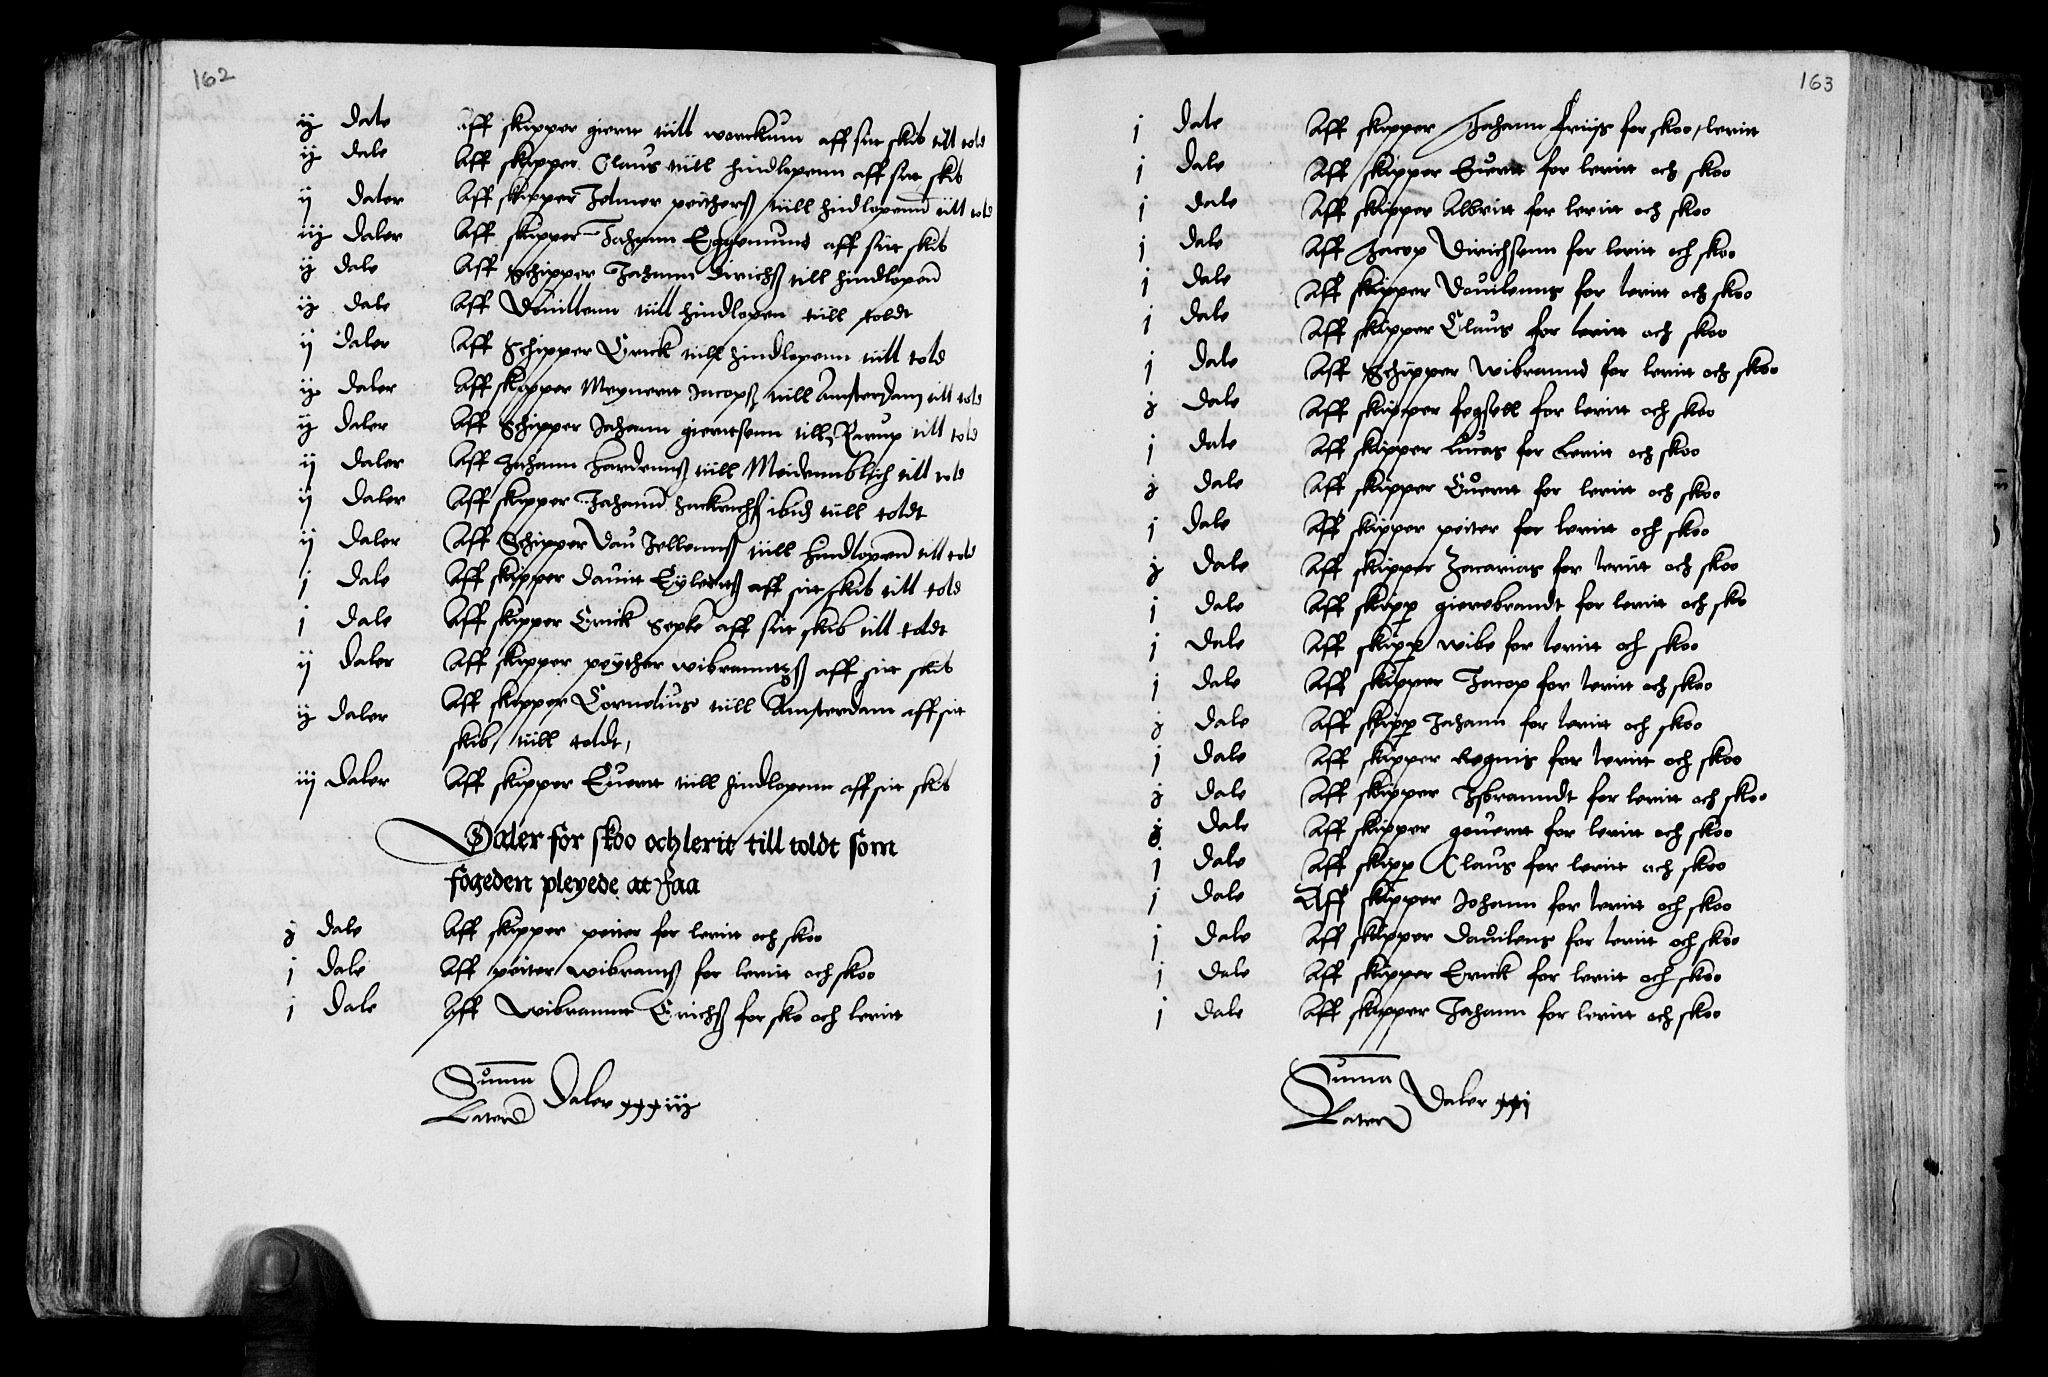 162
ij dale Aff skipper giert till worckum aff sitt skib till told
ij dale Aff skipper Claus till hindlopenn aff sitt skib
ij daler Aff skipper Jelmer peithersß till hindlopenn till told
iij daler Aff skipper Johann Eggemund aff sitt skib
ij dale Aff Schipper Johann dirichß till hindlopenn
ij dale Aff Douittenn till hindlopen till toldt
ij daler Aff Schipper Erick till hindlopenn till told
ij daler Aff skipper Meynertt Jacopß till Amsterdam till told
ij daler Aff Schipper Johann giertsenn till Rarup till told
ij daler Aff Johann hardennß till Meidennblich till told
ij daler Aff skipper Johann ibid till toldt
ij daler Aff Schipper Dau Jellennß till hindlopenn till told
j dale Aff skipper dauitt Eylertß aff sitt skib till told
j dale Aff skipper Erick Sepke aff sitt skib till toldt
ij daler Aff skipper peyther wibranntzß aff sitt skib
ij daler Aff skipper Cornelius till Amsterdam aff sitt
skib, till toldt,
iij daler Aff skipper Euertt till hindlopenn aff sitt skib
Daler for skoo och lerit till toldt som
fogeden pleyede at Faa
j dale Aff skipper peiter for leritt och skoo
j dale Aff peiter wibrantß for leritt och skoo
j dale Aff Wibrannt Erichß for sko och leritt
Summa
Lateris Daler xxxiij
163
j dale Aff skipper Johann Friiss for skoo, leritt
j dale Aff skipper Euertt for leritt och skoo
j dale Aff skipper Albritt for leritt och skoo
j dale Aff Jacop Dirichsenn for leritt och skoo
j dale Aff skipper Douilenns for leritt och skoo
j dale Aff skipper Claus for leritt och skoo
j dale Aff Schipper Wibrannd for leritt och skoo
j dale Aff skipper fegsell for leritt och skoo
j dale Aff skipper Lucas for Leritt och skoo
j dale Aff skipper Euertt for leritt och skoo
j dale Aff skipper peiter for leritt och skoo
j dale Aff skipper Zacarias for leritt och skoo
j dale Aff skipp gierebrandt for leritt och sko
j dale Aff skipp wibe for leritt och skoo
j dale Aff skipper Jacop for leritt och skoo
j dale Aff skipp Johann for leritt och skoo
j dale Aff skipper Regnis for leritt och skoo
j dale Aff skipper Isbranndt for leritt och skoo
j dale Aff skipper gouertt for leritt och skoo
j dale Aff skipp Claus for leritt och skoo
j dale Aff skipper Johann for leritt och skoo
j dale Aff skipper Douilens for leritt och skoo
j dale Aff skipper Erick for leritt och skoo
j dale Aff skipper Johann for leritt och skoo
Summa
Lateris Daler xxj